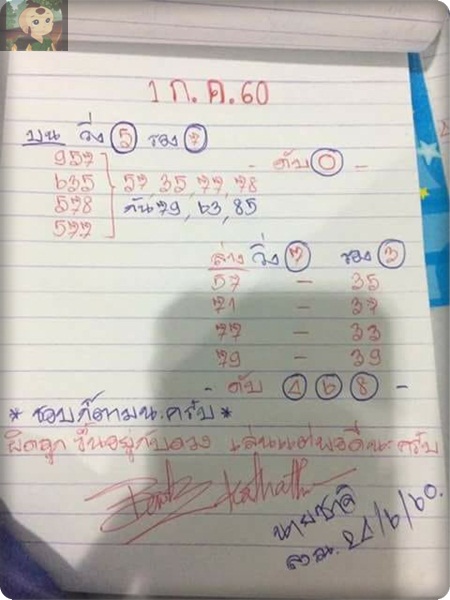 1 ก.ค.60
บน วิ่ง 5 รอง 7
957
635
578
577
57, 35, 77, 78
กัน 79, 63, 85
- ดับ 0 -
ล่าง วิ่ง 7 รอง 3
57 - 35
71 - 37
77 - 33
79 - 39
- ดับ 1 6 8 -
* ชอบก็ตามน.ครับ *
ผิดถูก ขึ้นอยู่กับดวง เล่นแต่พอดีนะครับ
นายชาลี
24/6/60.